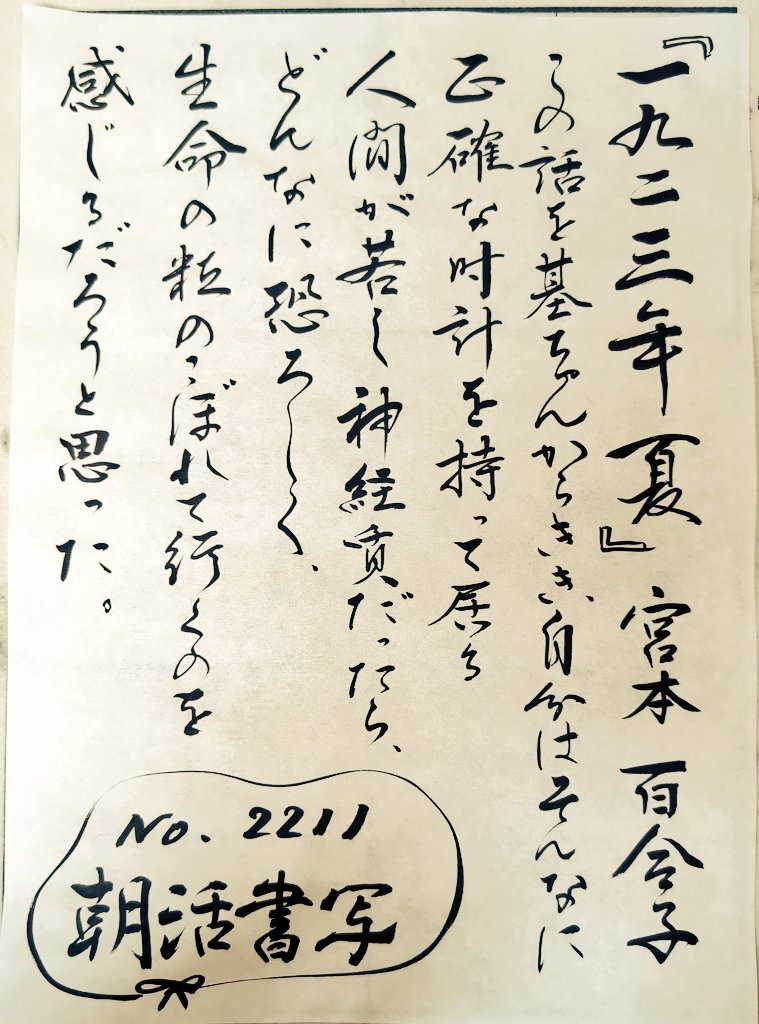 『一九二三年夏』 宮本 百合子
この話を基ちゃんからきき、自分はそんなに
正確な时計を持って居る
人間が若し神経質だったら、
どんなに恐ろしく、
生命の粒のこぼれて行くのを
感じるだろうと思った。
No. 2211
朝活書写